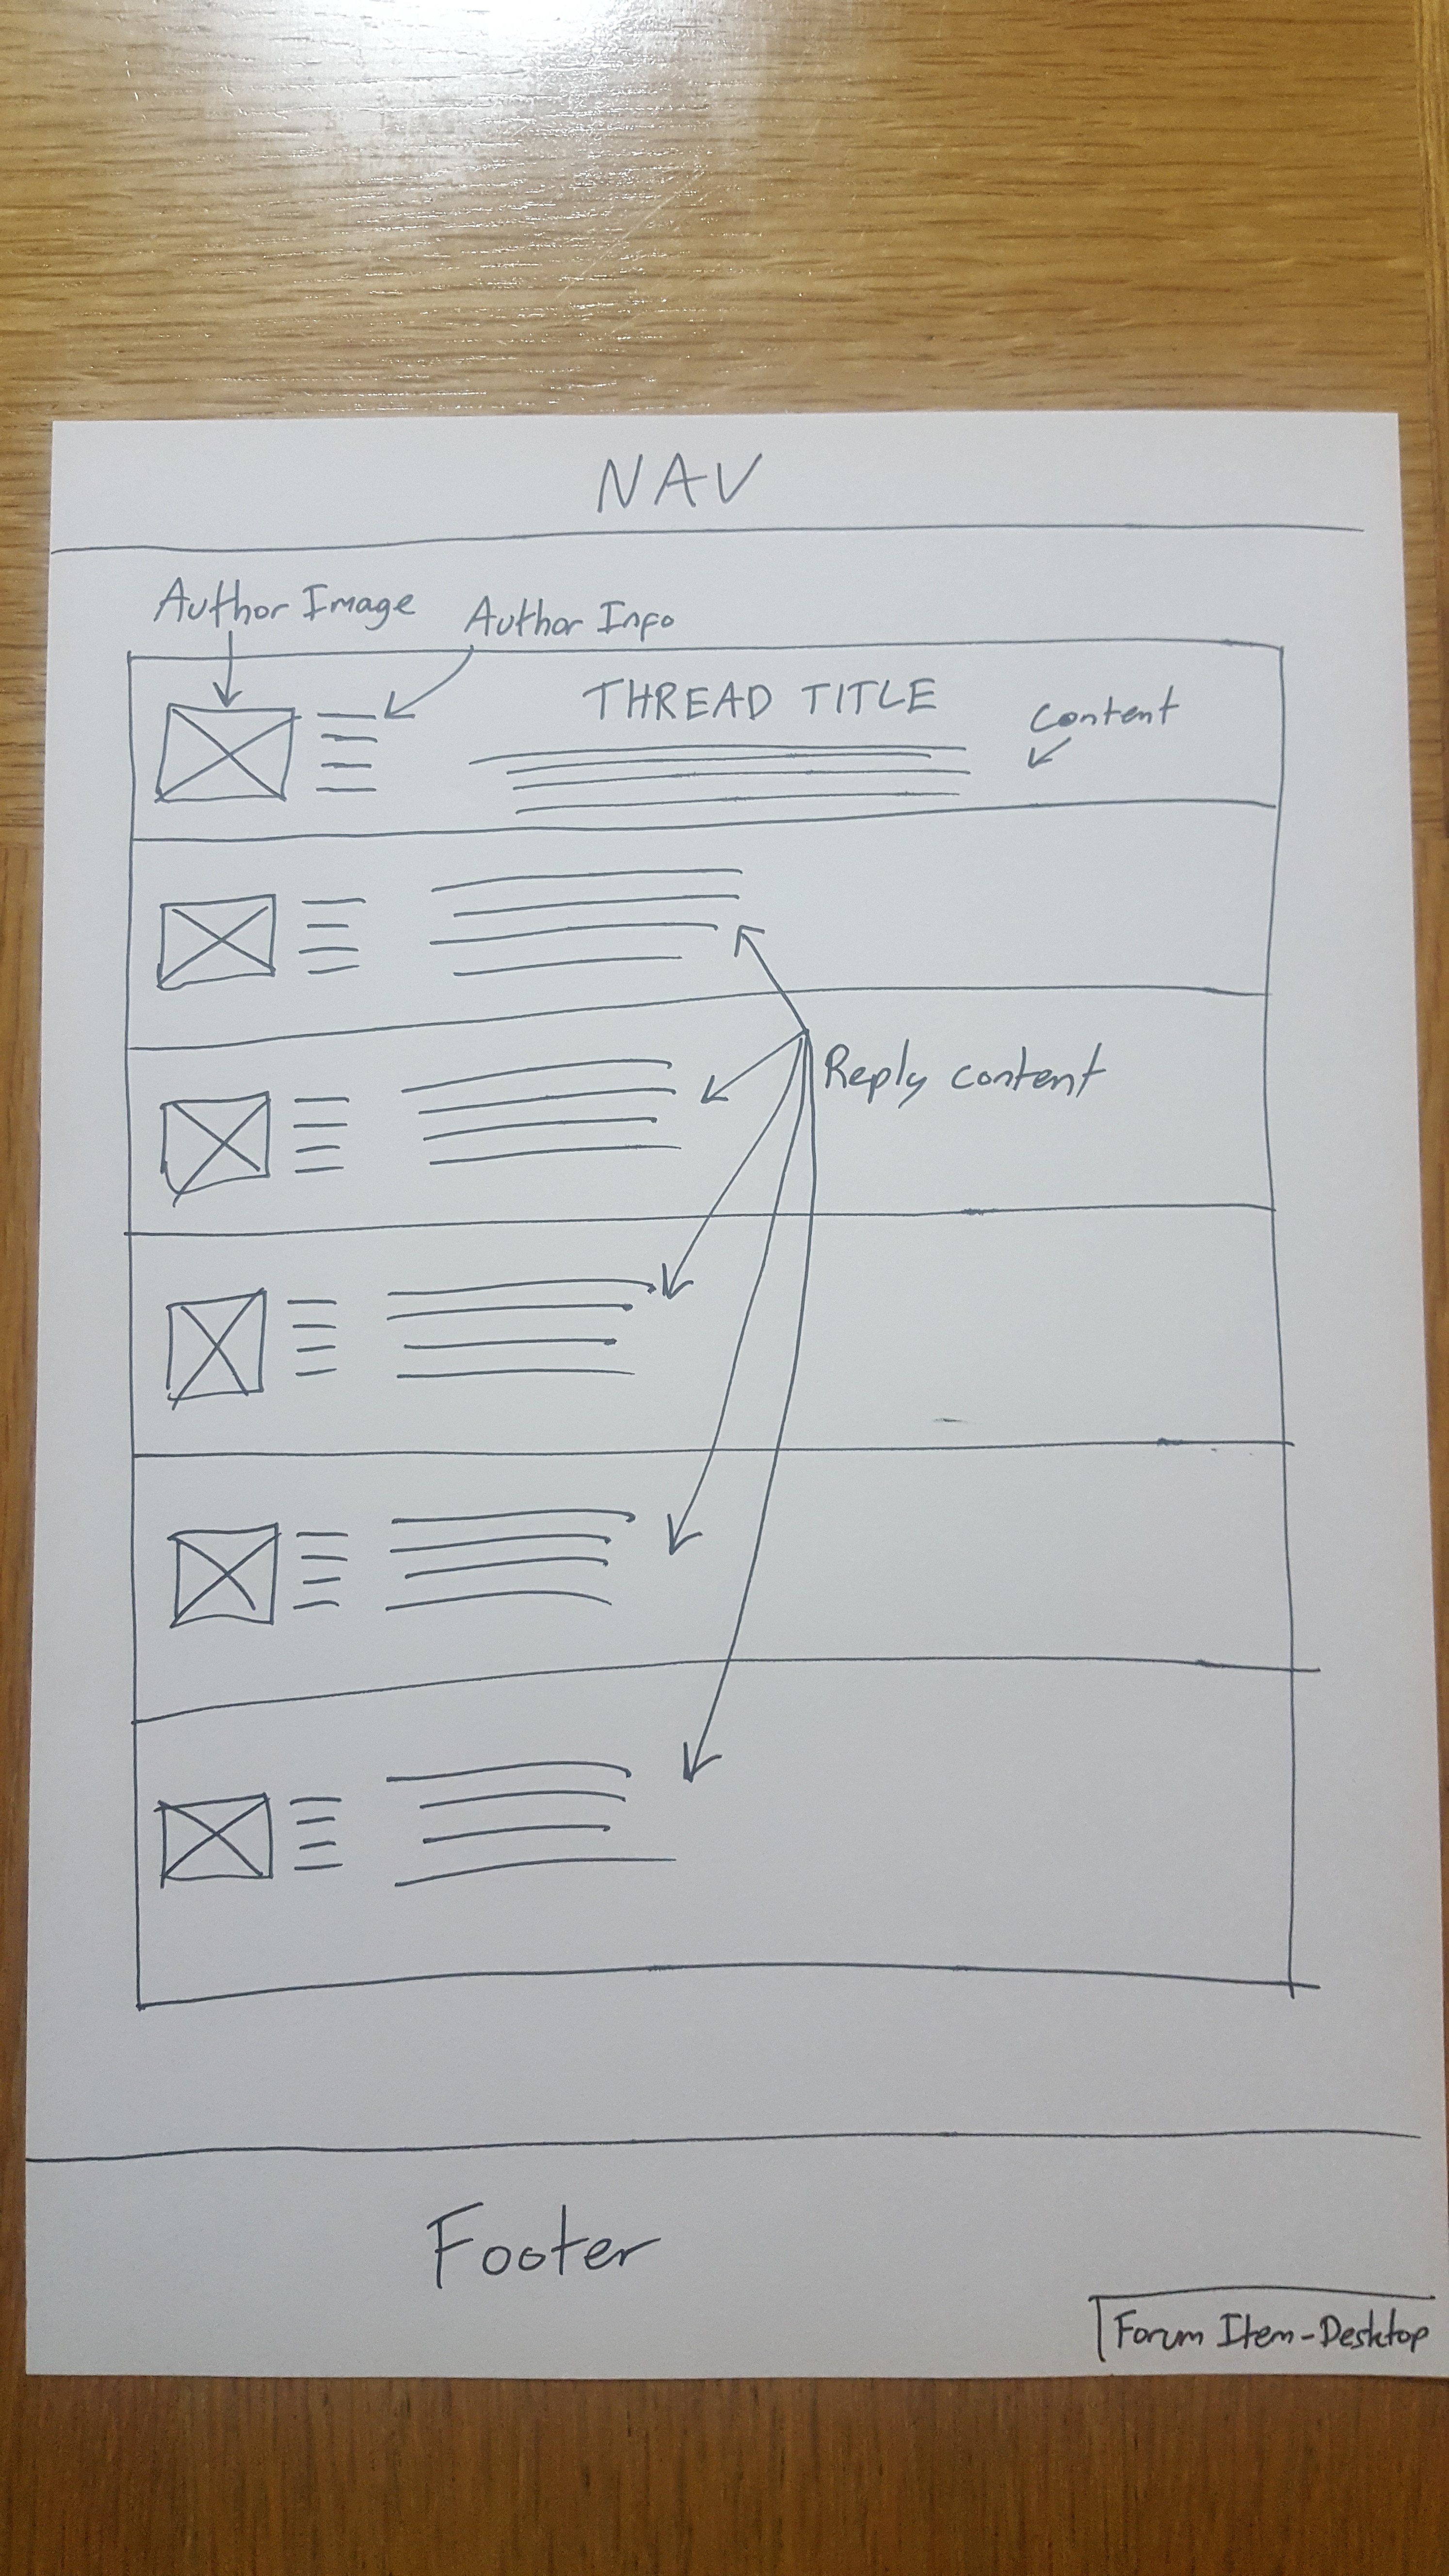 NAV
Author Image
Author Info
THREAD TITLE
Content
Reply content
Footer
Forum Item-Desktop